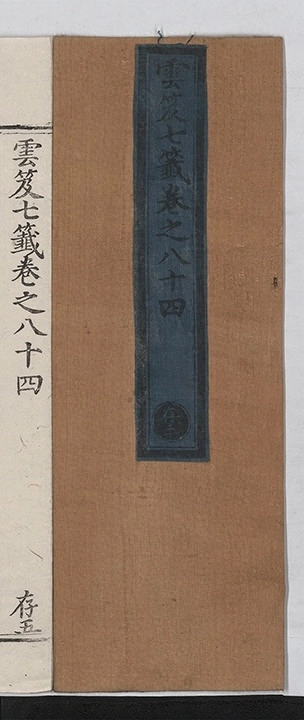 雲笈七籤卷之八十四
雲笈七籤卷之八十四
存五